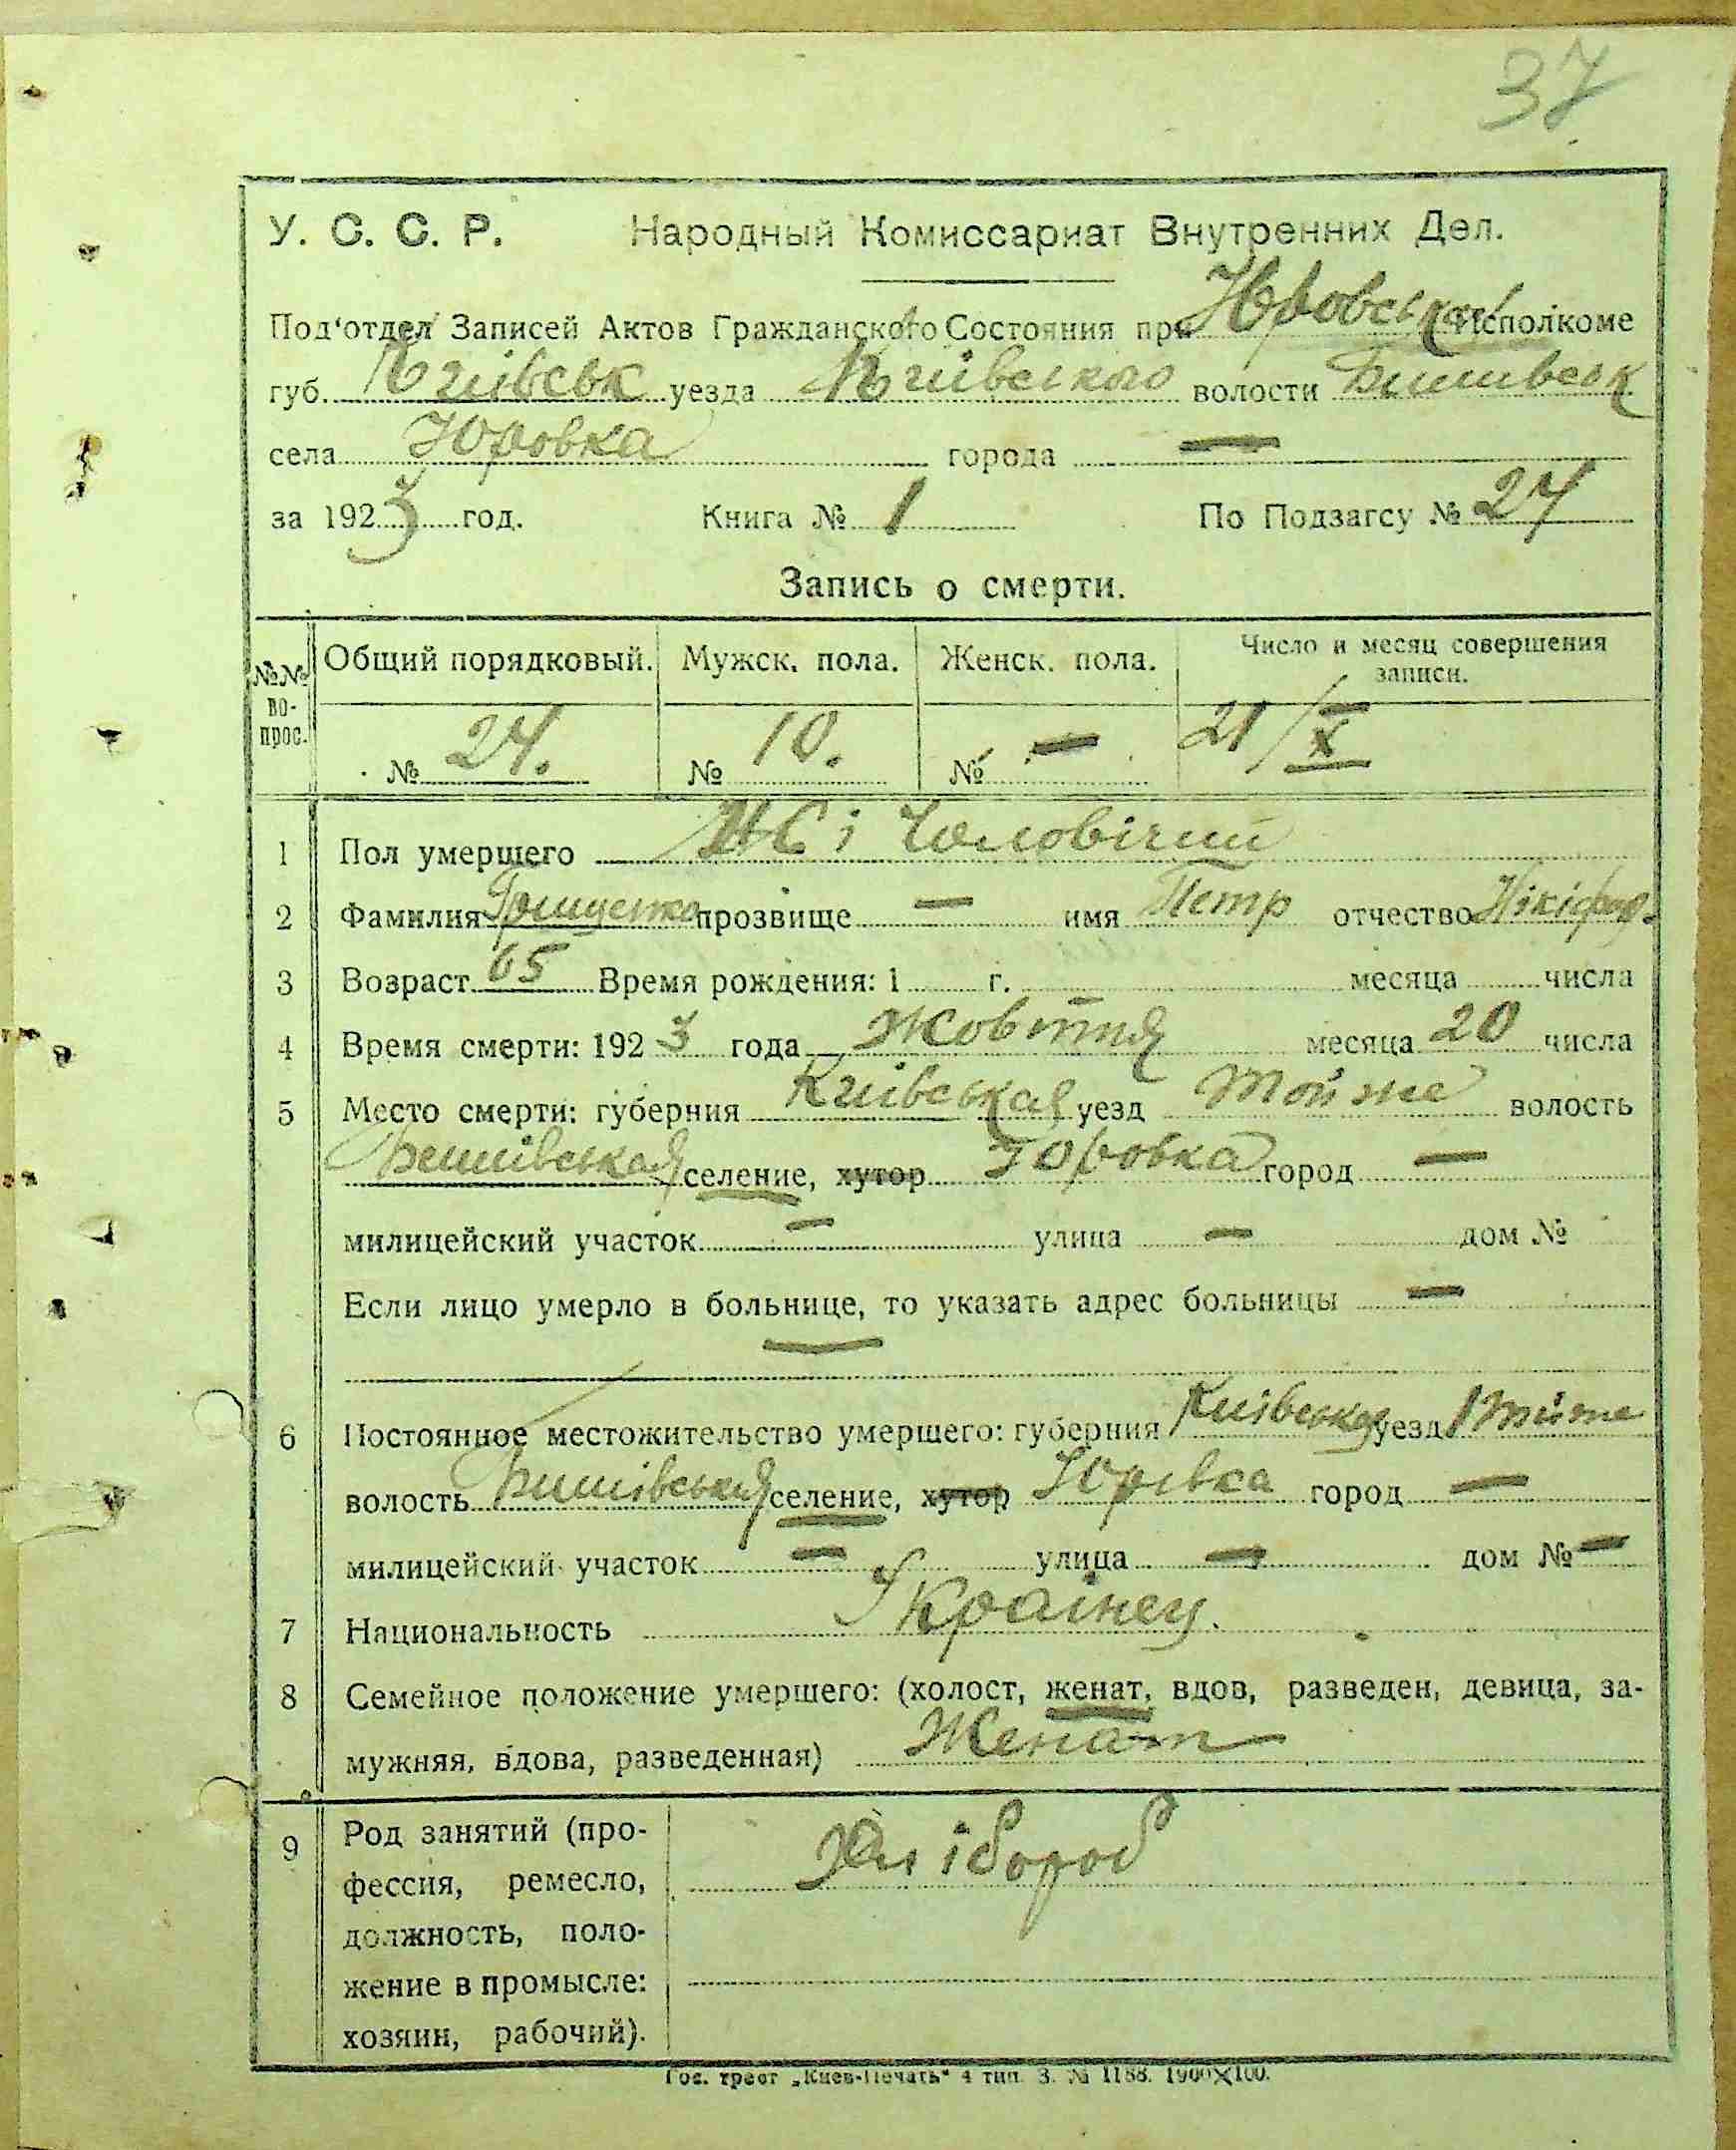 37
У. С. С. Р. Народный Комиссариат Внутренних Дел.
Под'отдел Записей Актов Гражданского Состояния при Юровській Исполкоме
губ. Київськ уезда Київського волости Бишівськ
села Юровка города —
за 1923 год. Книга № 1 По Подзагсу № 24
Запись о смерти.
№№ во-прос. Общий порядковый. Мужск. пола. Женск. пола. Число и месяц совершения записи.
№ 24. № 10. № — 21/X
1 Пол умершего Чоловічий
2 Фамилия Грищенко прозвище — имя Петр отчество Нікіфор.
3 Возраст 65 Время рождения: 1 г. месяца числа
4 Время смерти: 1923 года Жовтня месяца 20 числа
5 Место смерти: губерния Київськая уезд Той же волость
Бишівськая селение, хутор Юровка город —
милицейский участок — улица — дом №
Если лицо умерло в больнице, то указать адрес больницы —
—
6 Постоянное местожительство умершего: губерния Київськая уезд Той же
волость Бишівськая селение, хутор Юрівка город —
милицейский участок — улица — дом № —
7 Национальность Українец.
8 Семейное положение умершего: (холост, женат, вдов, разведен, девица, за-
мужняя, вдова, разведенная) Женат
9 Род занятий (про-
фессия, ремесло, Хлібороб
должность, поло-
жение в промысле:
хозяин, рабочий).
Гос. трест „Киев-Печать" 4 тип. З. № 1188. 1900×100.